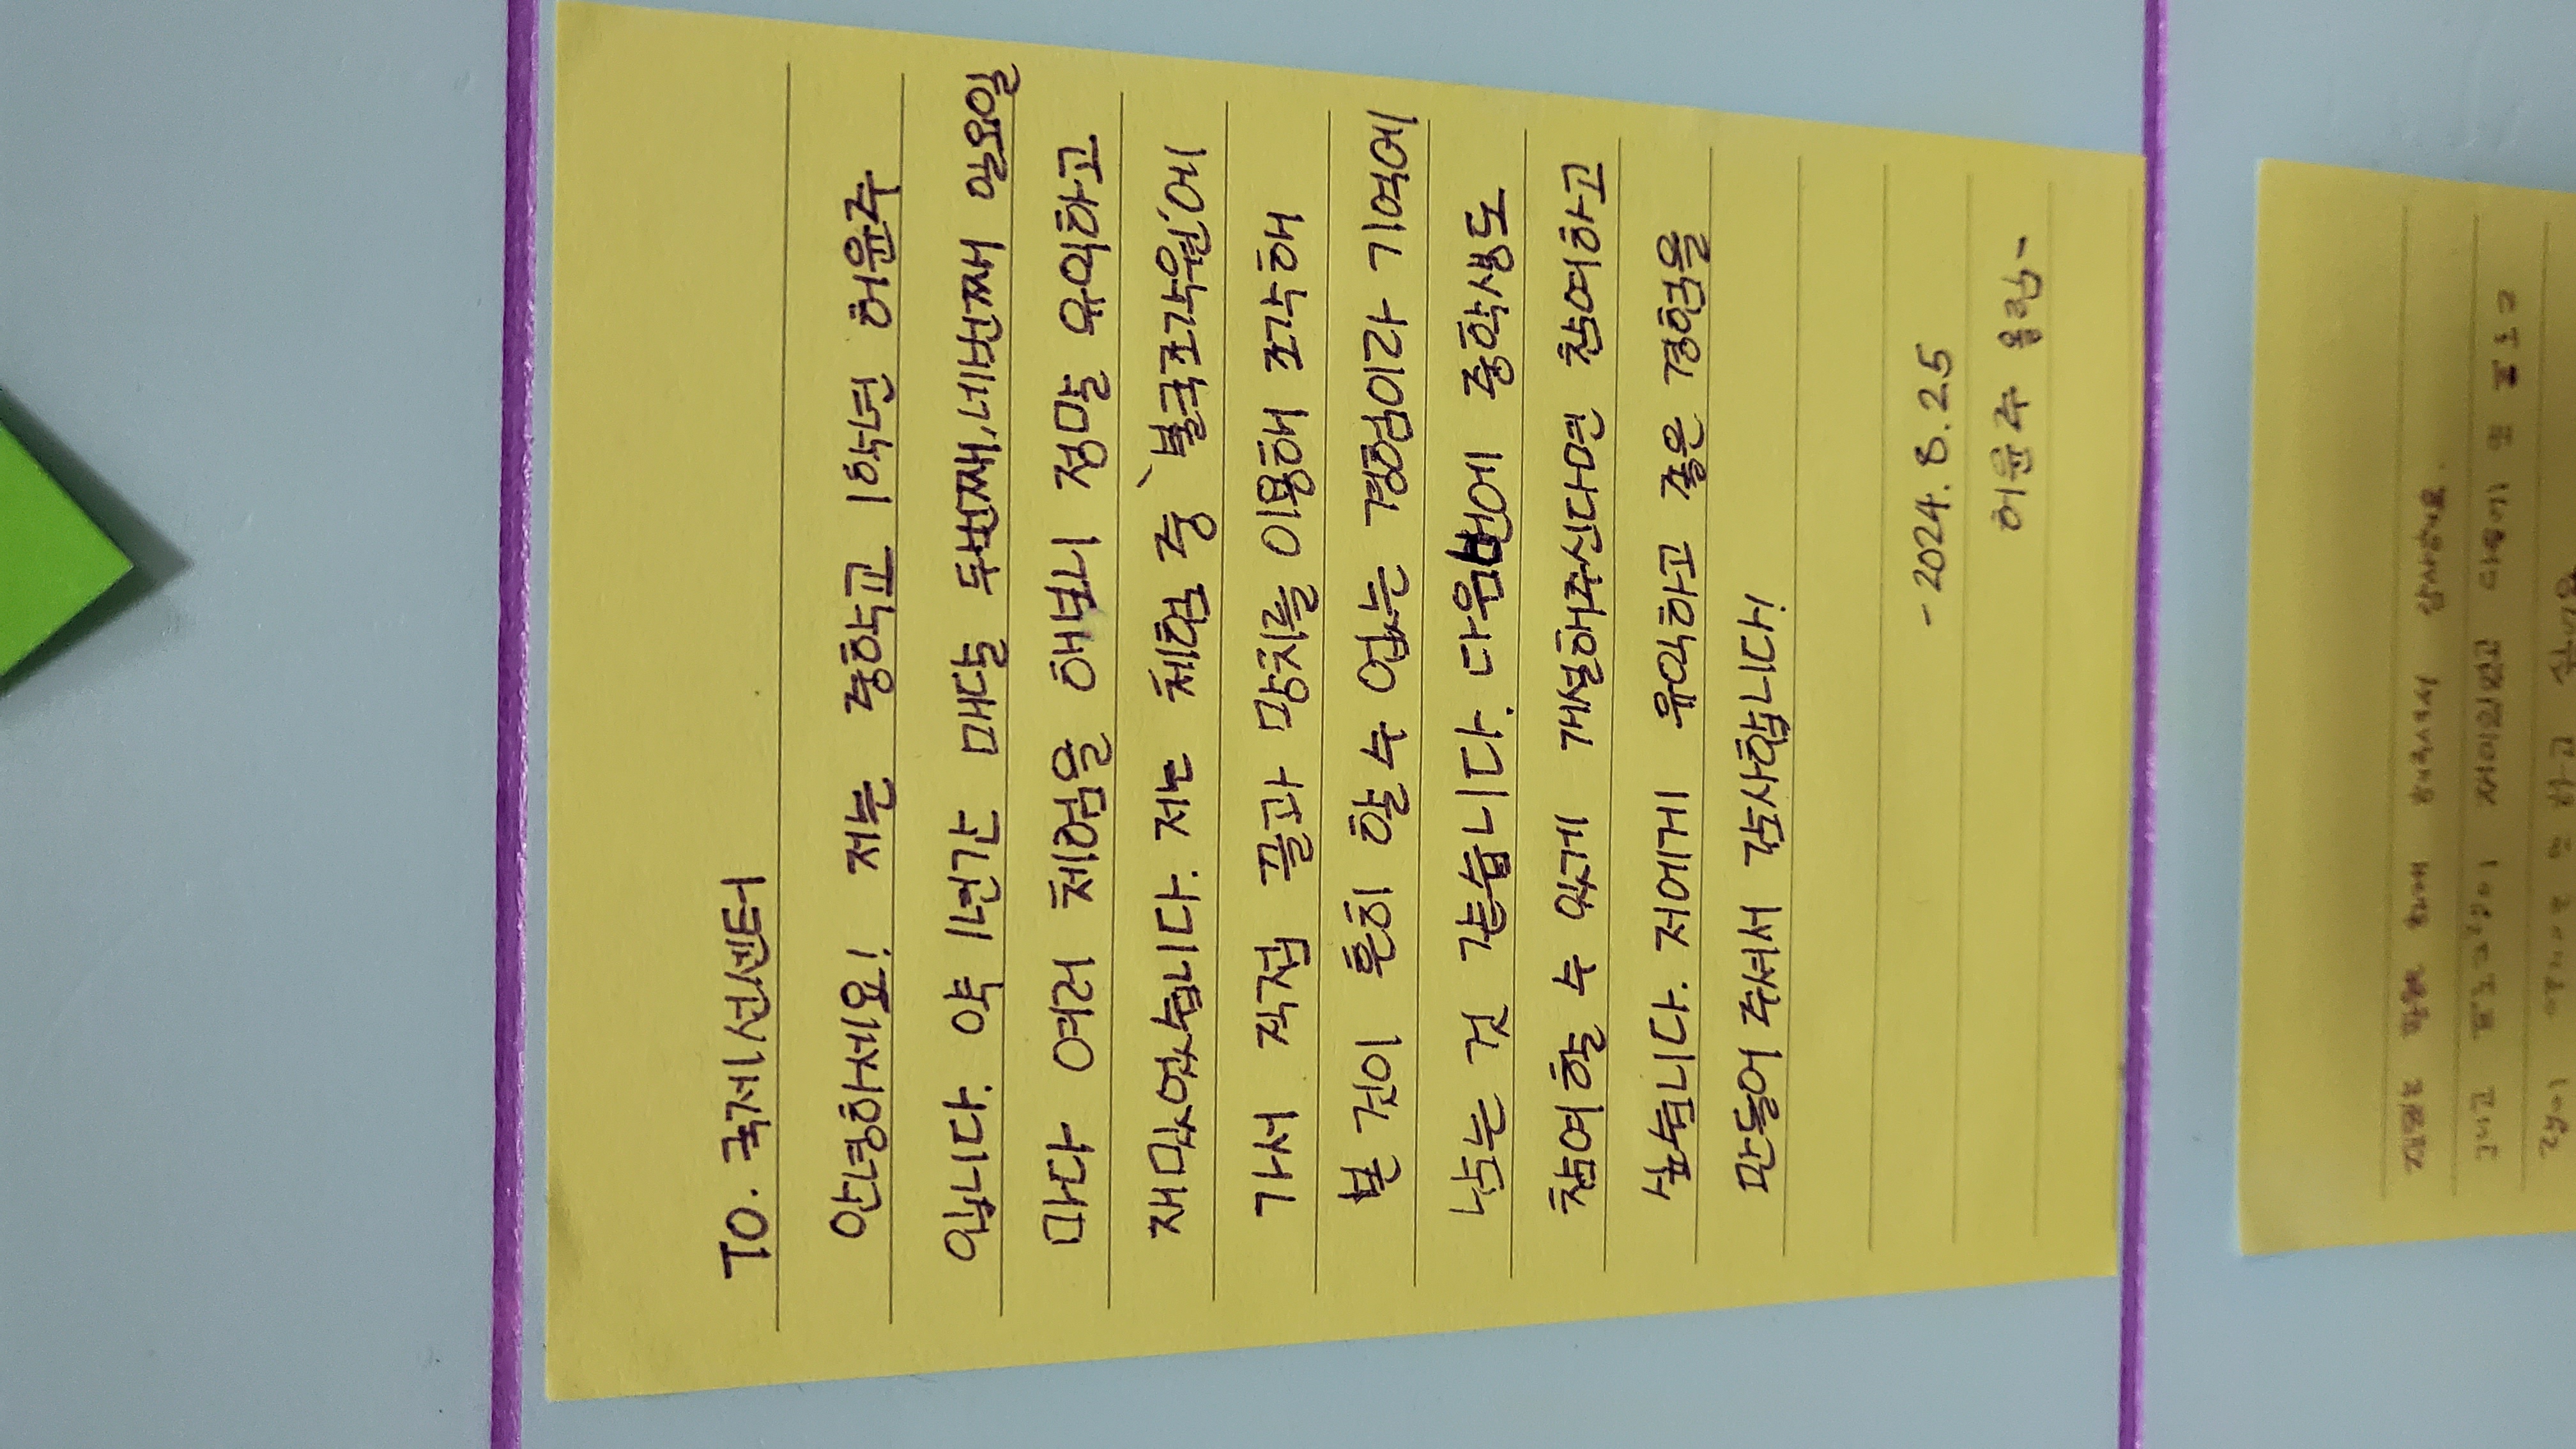 TO. 국제선센터
안녕하세요! 저는 중학교 1학년 허윤주
입니다. 약 1년간 매달 두번째,네번째 일요일
마다 여러 체험을 해보니 정말 유익하고
재밌었습니다. 저는 체험 중 '불국조각원'에
가서 직접 끌과 망치를 이용해 조각해
본 것이 흔히 할 수 없는 경험이라 기억에
남는 것 같습니다. 다음번에 중학생도
참여할 수 있게 개설해주신다면 참여하고
싶습니다. 저에게 유익하고 좋은 경험을
만들어 주셔서 감사합니다!
-2024. 8. 25
허윤주 올림-